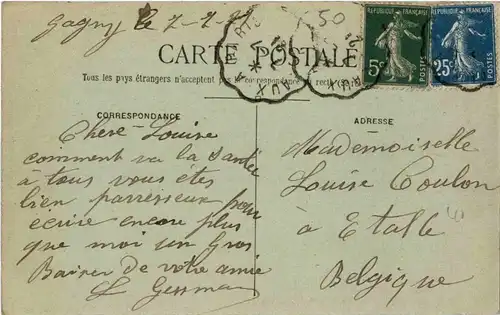 Gagny le 7-2-
50
CARTE POSTALE
Tous les pays étrangers n'acceptent pas la correspondance au recto
RÉPUBLIQUE FRANÇAISE
5c
POSTES
RÉPUBLIQUE FRANÇAISE
25c
POSTES
CORRESPONDANCE
Chere Louise
comment va la Santée
à tous vous êtes
bien parresseux pour
écrire encore plus
que moi un Gros
Baiser de votre amie
ADRESSE
Mademoiselle
Louise Coulon
à Etalle
Belgique